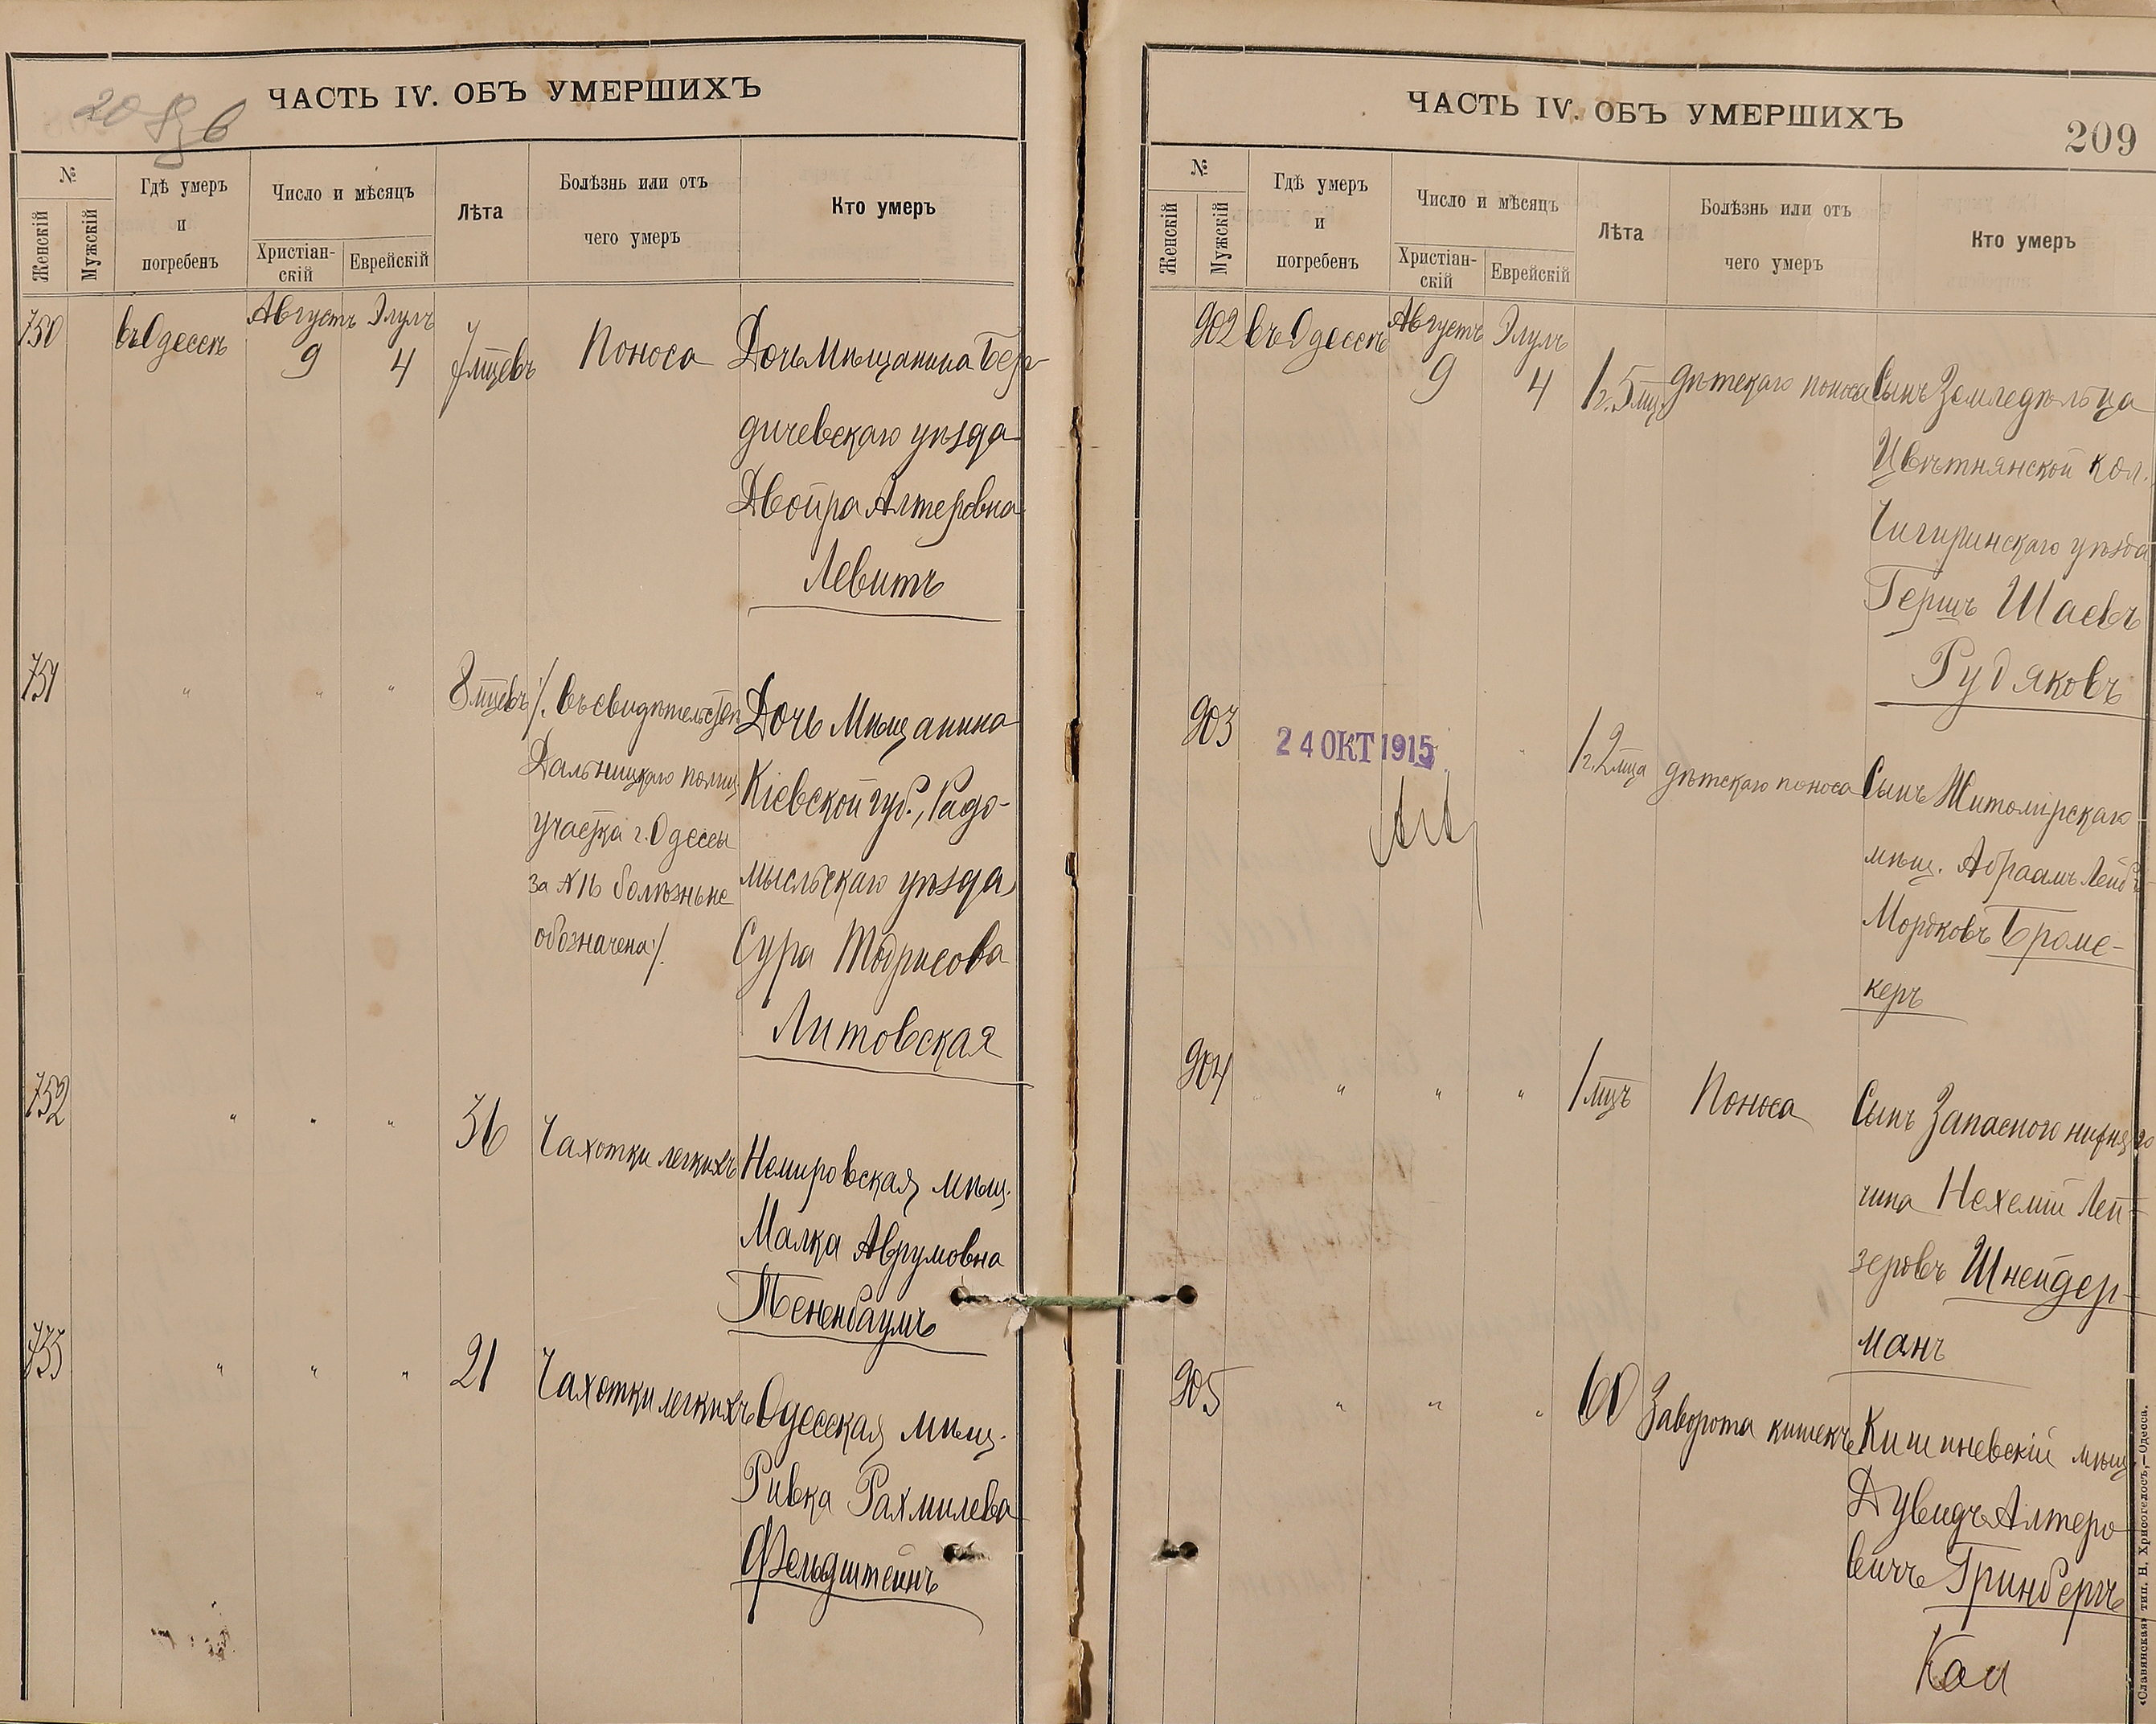 ЧАСТЬ IV. ОБЪ УМЕРШИХЪ
№
Женскій
Мужскій
Гдѣ умеръ
и
погребенъ
Число и мѣсяцъ
Христіан-
скій
Еврейскій
Лѣта
Болѣзнь или отъ
чего умеръ
Кто умеръ
750
въ Одессѣ
Августъ
9
Элулъ
4
7 мцевъ
Поноса
Дочь Мѣщанина Бер-
дичевскаго уѣзда
Двойра Алтеровна
Левитъ
751
" " "
8 мцевъ
/. въ свидѣтельствѣ
Дальницкаго полиц.
участка г. Одессы
за № болѣзнь не
обозначена /.
Дочь Мѣщанина
Кіевской губ., Радо-
мысльскаго уѣзда,
Сура Тодрисова
Литовская
752
" " "
36
Чахотки легкихъ
Немировская мѣщ.
Малка Аврумовна
Тененбаумъ
753
" " "
21
Чахотки легкихъ
Одесская мѣщ.
Ривка Рахмилева
Фельдштейнъ
ЧАСТЬ IV. ОБЪ УМЕРШИХЪ
209
№
Женскій
Мужскій
Гдѣ умеръ
и
погребенъ
Число и мѣсяцъ
Христіан-
скій
Еврейскій
Лѣта
Болѣзнь или отъ
чего умеръ
Кто умеръ
902
въ Одессѣ
Августъ
9
Элулъ
4
1 г. 5 мц.
дѣтскаго поноса
Сынъ Земледѣльца
Цвѣтнянской кол.
Чигиринскаго уѣзда
Гершъ Шаевъ
Рудяковъ
903
24 ОКТ 1915
"
1 г. 2 мца
дѣтскаго поноса
Сынъ Житомірскаго
мѣщ. Абраамъ Лейбъ
Мордковъ Броме-
керъ
904
" " "
1 мцъ
Поноса
Сынъ Запасного нижняго
чина Нехемій Лей-
зеровъ Шнейдер-
манъ
905
" " "
60
Заворота кишекъ
Кишиневскій мѣщ.
Дувидъ Алтеро
вичъ Гринбергъ
«Славянская» тип. Н. Хрисогелосъ,—Одесса.